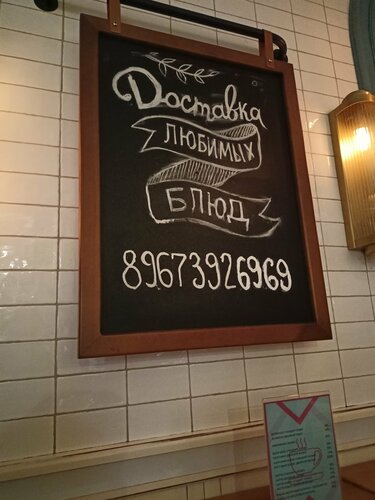 Доставка
ЛЮБИМЫХ
БЛЮД
89673926969